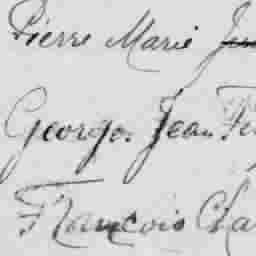 Pierre Marie
George Jean
François Cha